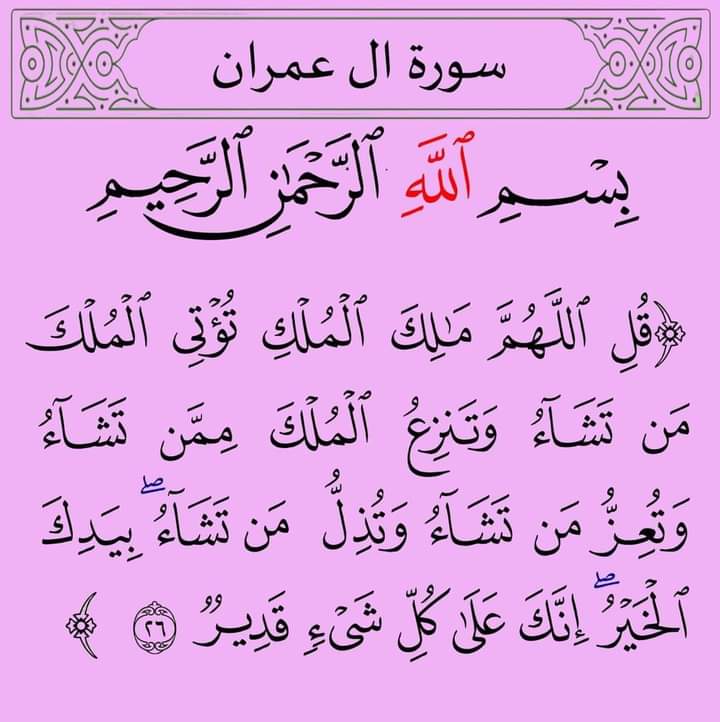 سورة ال عمران
بِسْمِ ٱللَّهِ ٱلرَّحْمَٰنِ ٱلرَّحِيمِ
﴿قُلِ ٱللَّهُمَّ مَٰلِكَ ٱلْمُلْكِ تُؤْتِى ٱلْمُلْكَ
مَن تَشَآءُ وَتَنزِعُ ٱلْمُلْكَ مِمَّن تَشَآءُ
وَتُعِزُّ مَن تَشَآءُ وَتُذِلُّ مَن تَشَآءُۖ بِيَدِكَ
ٱلْخَيْرُۖ إِنَّكَ عَلَىٰ كُلِّ شَىْءٍ قَدِيرٌ ٢٦ ﴾